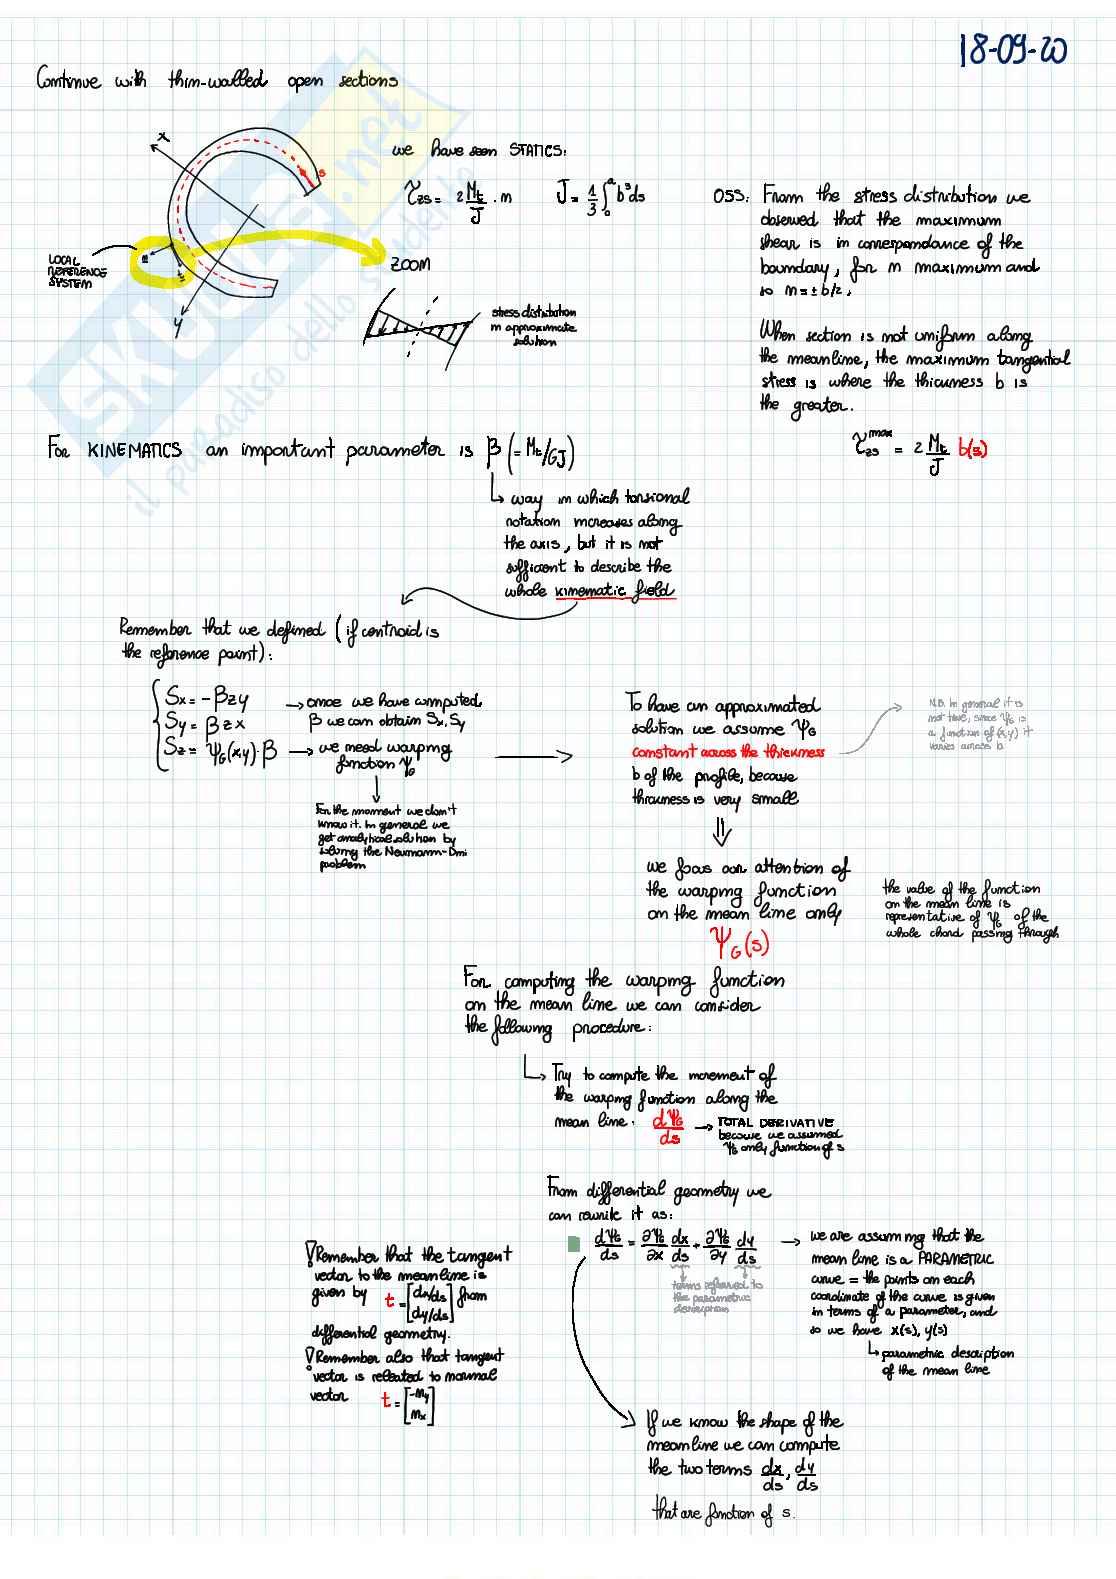 18-09-20
Continue with thin-walled open sections
we have seen STATICS:
τzs = 2 Mt/J · n J = 1/3 ∫₀ᵃ b³ds
x
s
n
t
y
LOCAL
REFERENCE
SYSTEM
ZOOM
stress distribution
in approximate
solution
OSS: From the stress distribution we
observed that the maximum
shear is in correspondance of the
boundary, for n maximum and
so n = ± b/2.
When section is not uniform along
the meanline, the maximum tangential
stress is where the thickness b is
the greater.
τzs^max = 2 Mt/J b(s)
For KINEMATICS an important parameter is β (= Mt/GJ)
↳ way in which torsional
rotation increases along
the axis, but it is not
sufficient to describe the
whole kinematic field
Remember that we defined (if centroid is
the reference point):
Sx = -βzy → once we have computed
Sy = βzx β we can obtain Sx, Sy
Sz = ψG(x,y) β → we need warping
function ψG
For the moment we don't
know it. In general we
get analytical solution by
solving the Neumann-Dini
problem
To have an approximated
solution we assume ψG
constant across the thickness
b of the profile, because
thickness is very small
N.B. In general it is
not true, since ψG is
a function of (x,y) it
varies across b
⇓
we focus our attention of
the warping function
on the mean line only
ψG(s)
the value of the function
on the mean line is
representative of ψG of the
whole chord passing through
For computing the warping function
on the mean line we can consider
the following procedure:
↳ Try to compute the increment of
the warping function along the
mean line: dψG/ds → TOTAL DERIVATIVE
because we assumed
ψG only function of s
From differential geometry we
can rewrite it as:
dψG/ds = ∂ψG/∂x dx/ds + ∂ψG/∂y dy/ds
terms referred to
the parametric
description
→ we are assuming that the
mean line is a PARAMETRIC
curve = the points on each
coordinate of the curve is given
in terms of a parameter, and
so we have x(s), y(s)
↳ parametric description
of the mean line
! Remember that the tangent
vector to the meanline is
given by t = [dx/ds dy/ds] from
differential geometry.
! Remember also that tangent
vector is related to normal
vector t = [-ny nx]
If we know the shape of the
meanline we can compute
the two terms dx/ds, dy/ds
that are function of s.
SKUOLA.net
il paradiso dello studente